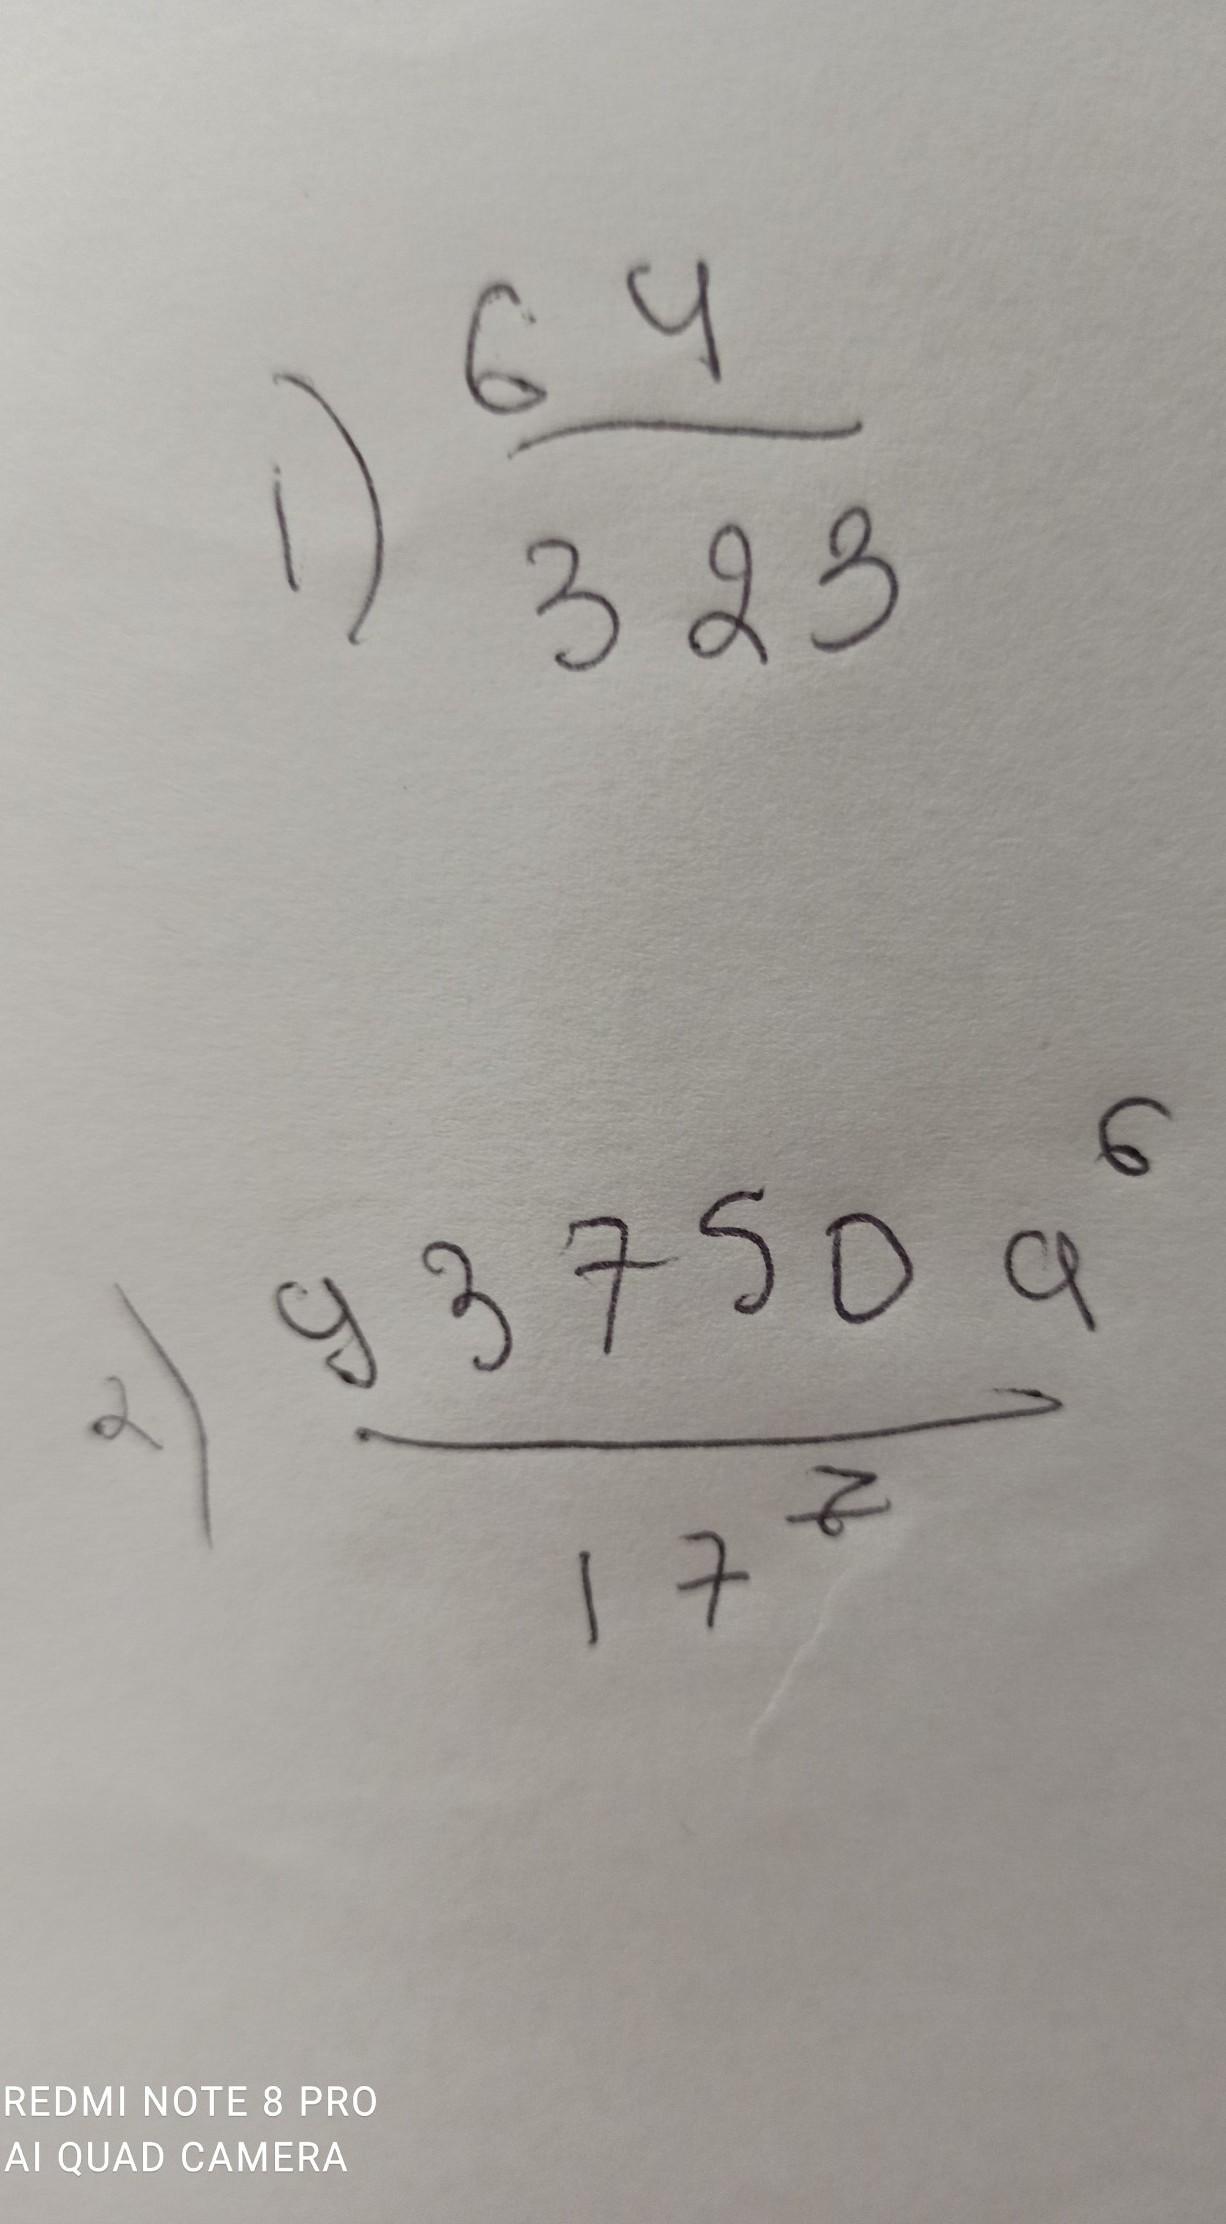 1) 64
323
2) 93750a⁶
17⁷
REDMI NOTE 8 PRO
AI QUAD CAMERA